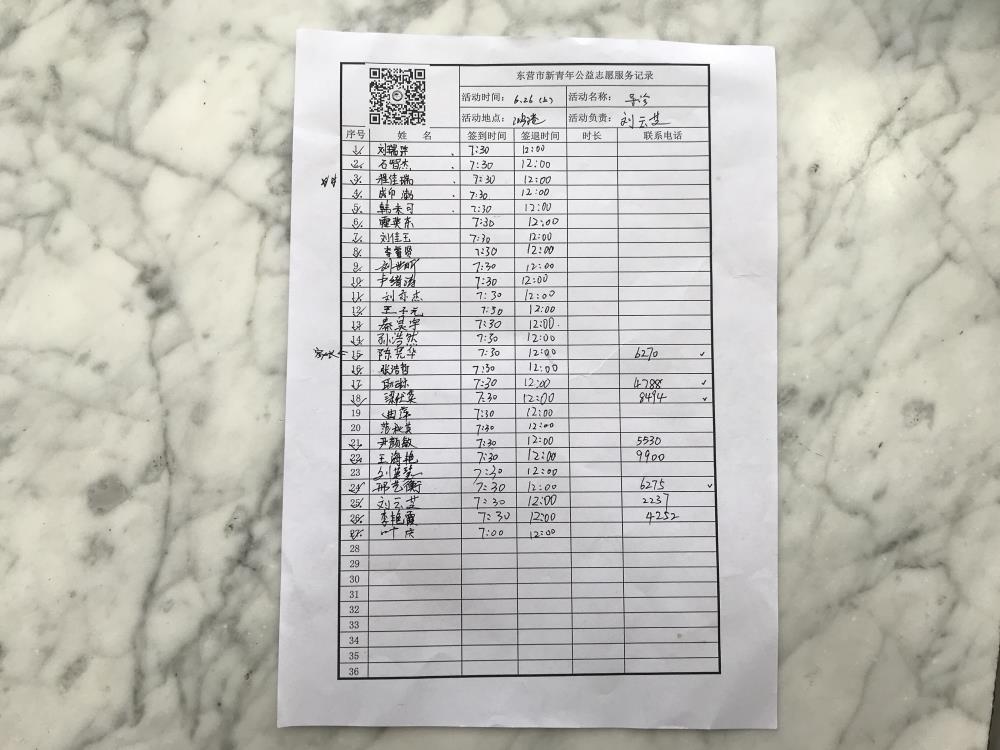 东营市新青年公益志愿服务记录
活动时间： 6.26（上） 活动名称： 导诊
活动地点： 活动负责： 刘云芝
序号 姓 名 签到时间 签退时间 时长 联系电话
1 刘瑞萍 7:30 12:00
2 石智杰 7:30 12:00
3 程佳瑞 7:30 12:00
4 7:30 12:00
5 韩未可 7:30 12:00
6 7:30 12:00
7 刘佳玉 7:30 12:00
8 李智贤 7:30 12:00
9 刘世昕 7:30 12:00
10 卢绪涛 7:30 12:00
11 刘亦杰 7:30 12:00
12 王子元 7:30 12:00
13 秦昊宇 7:30 12:00
14 孙浩然 7:30 12:00
15 陈宪华 7:30 12:00 6270
16 张浩哲 7:30 12:00
17 7:30 12:00 4788
18 7:30 12:00 8494
19 曲萍 7:30 12:00
20 范秋英 7:30 12:00
21 尹颜敏 7:30 12:00 5530
22 王海艳 7:30 12:00 9900
23 7:30 12:00
24 邢艺衡 7:30 12:00 6275
25 刘云芝 7:30 12:00 2237
26 李艳霞 7:30 12:00 4252
27 叶庆 7:00 12:00
28
29
30
31
32
33
34
35
36